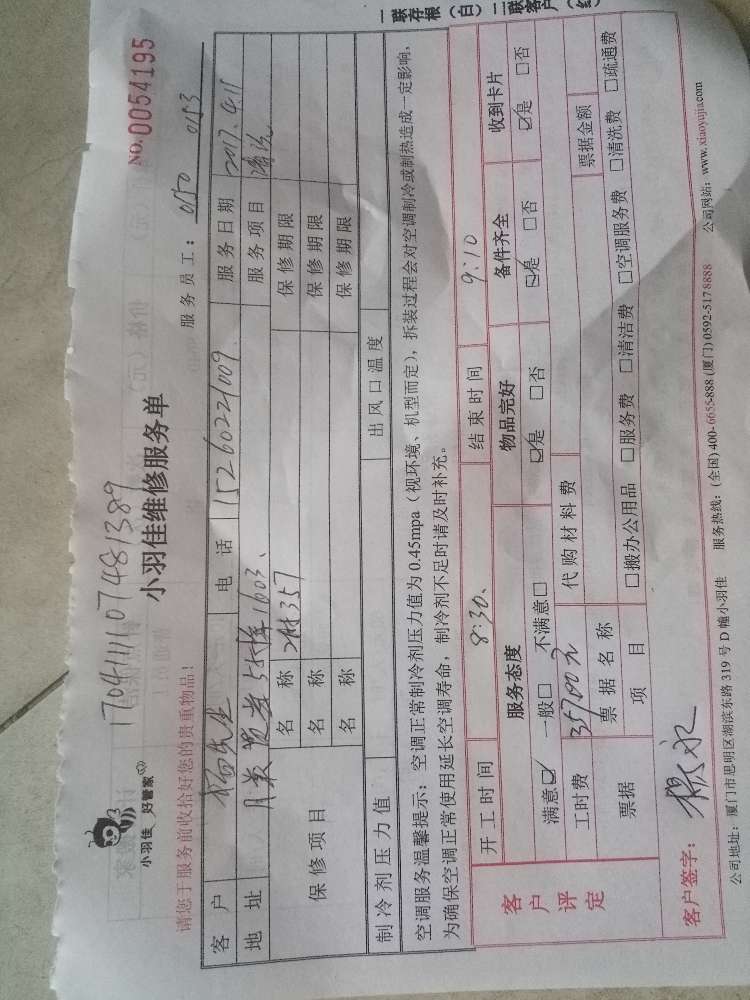 17041110７481389
NO.0054195
小羽佳 好管家
小羽佳维修服务单
请您于服务前收拾好您的贵重物品！
服务员工：0150 0153
客户 杨先生 电话 15260221009 服务日期 2017.4.11
地址 1603、 服务项目 清洗
保修项目 名称 保修期限
名称 保修期限
名称 保修期限
制冷剂压力值 出风口温度
空调服务温馨提示：空调正常制冷剂压力值为0.45mpa（视环境、机型而定），拆装过程会对空调制冷或制热造成一定影响，
为确保空调正常使用延长空调寿命，制冷剂不足时请及时补充。
客户评定 开工时间 8:30、 结束时间 9:10
服务态度 物品完好 备件齐全 收到卡片
满意☑ 一般□ 不满意□ ☑是 □否 ☑是 □否 ☑是 □否
工时费 代购材料费
票据 票据名称 票据金额
项目 □搬办公用品 □服务费 □清洁费 □空调服务费 □清洗费 □疏通费
客户签字：
公司地址：厦门市思明区湖滨东路319号D幢小羽佳 服务热线：(全国)400-6655-888 (厦门)0592-5178888 公司网站：www.xiaoyujia.com
一联存根（白）二联客户（红